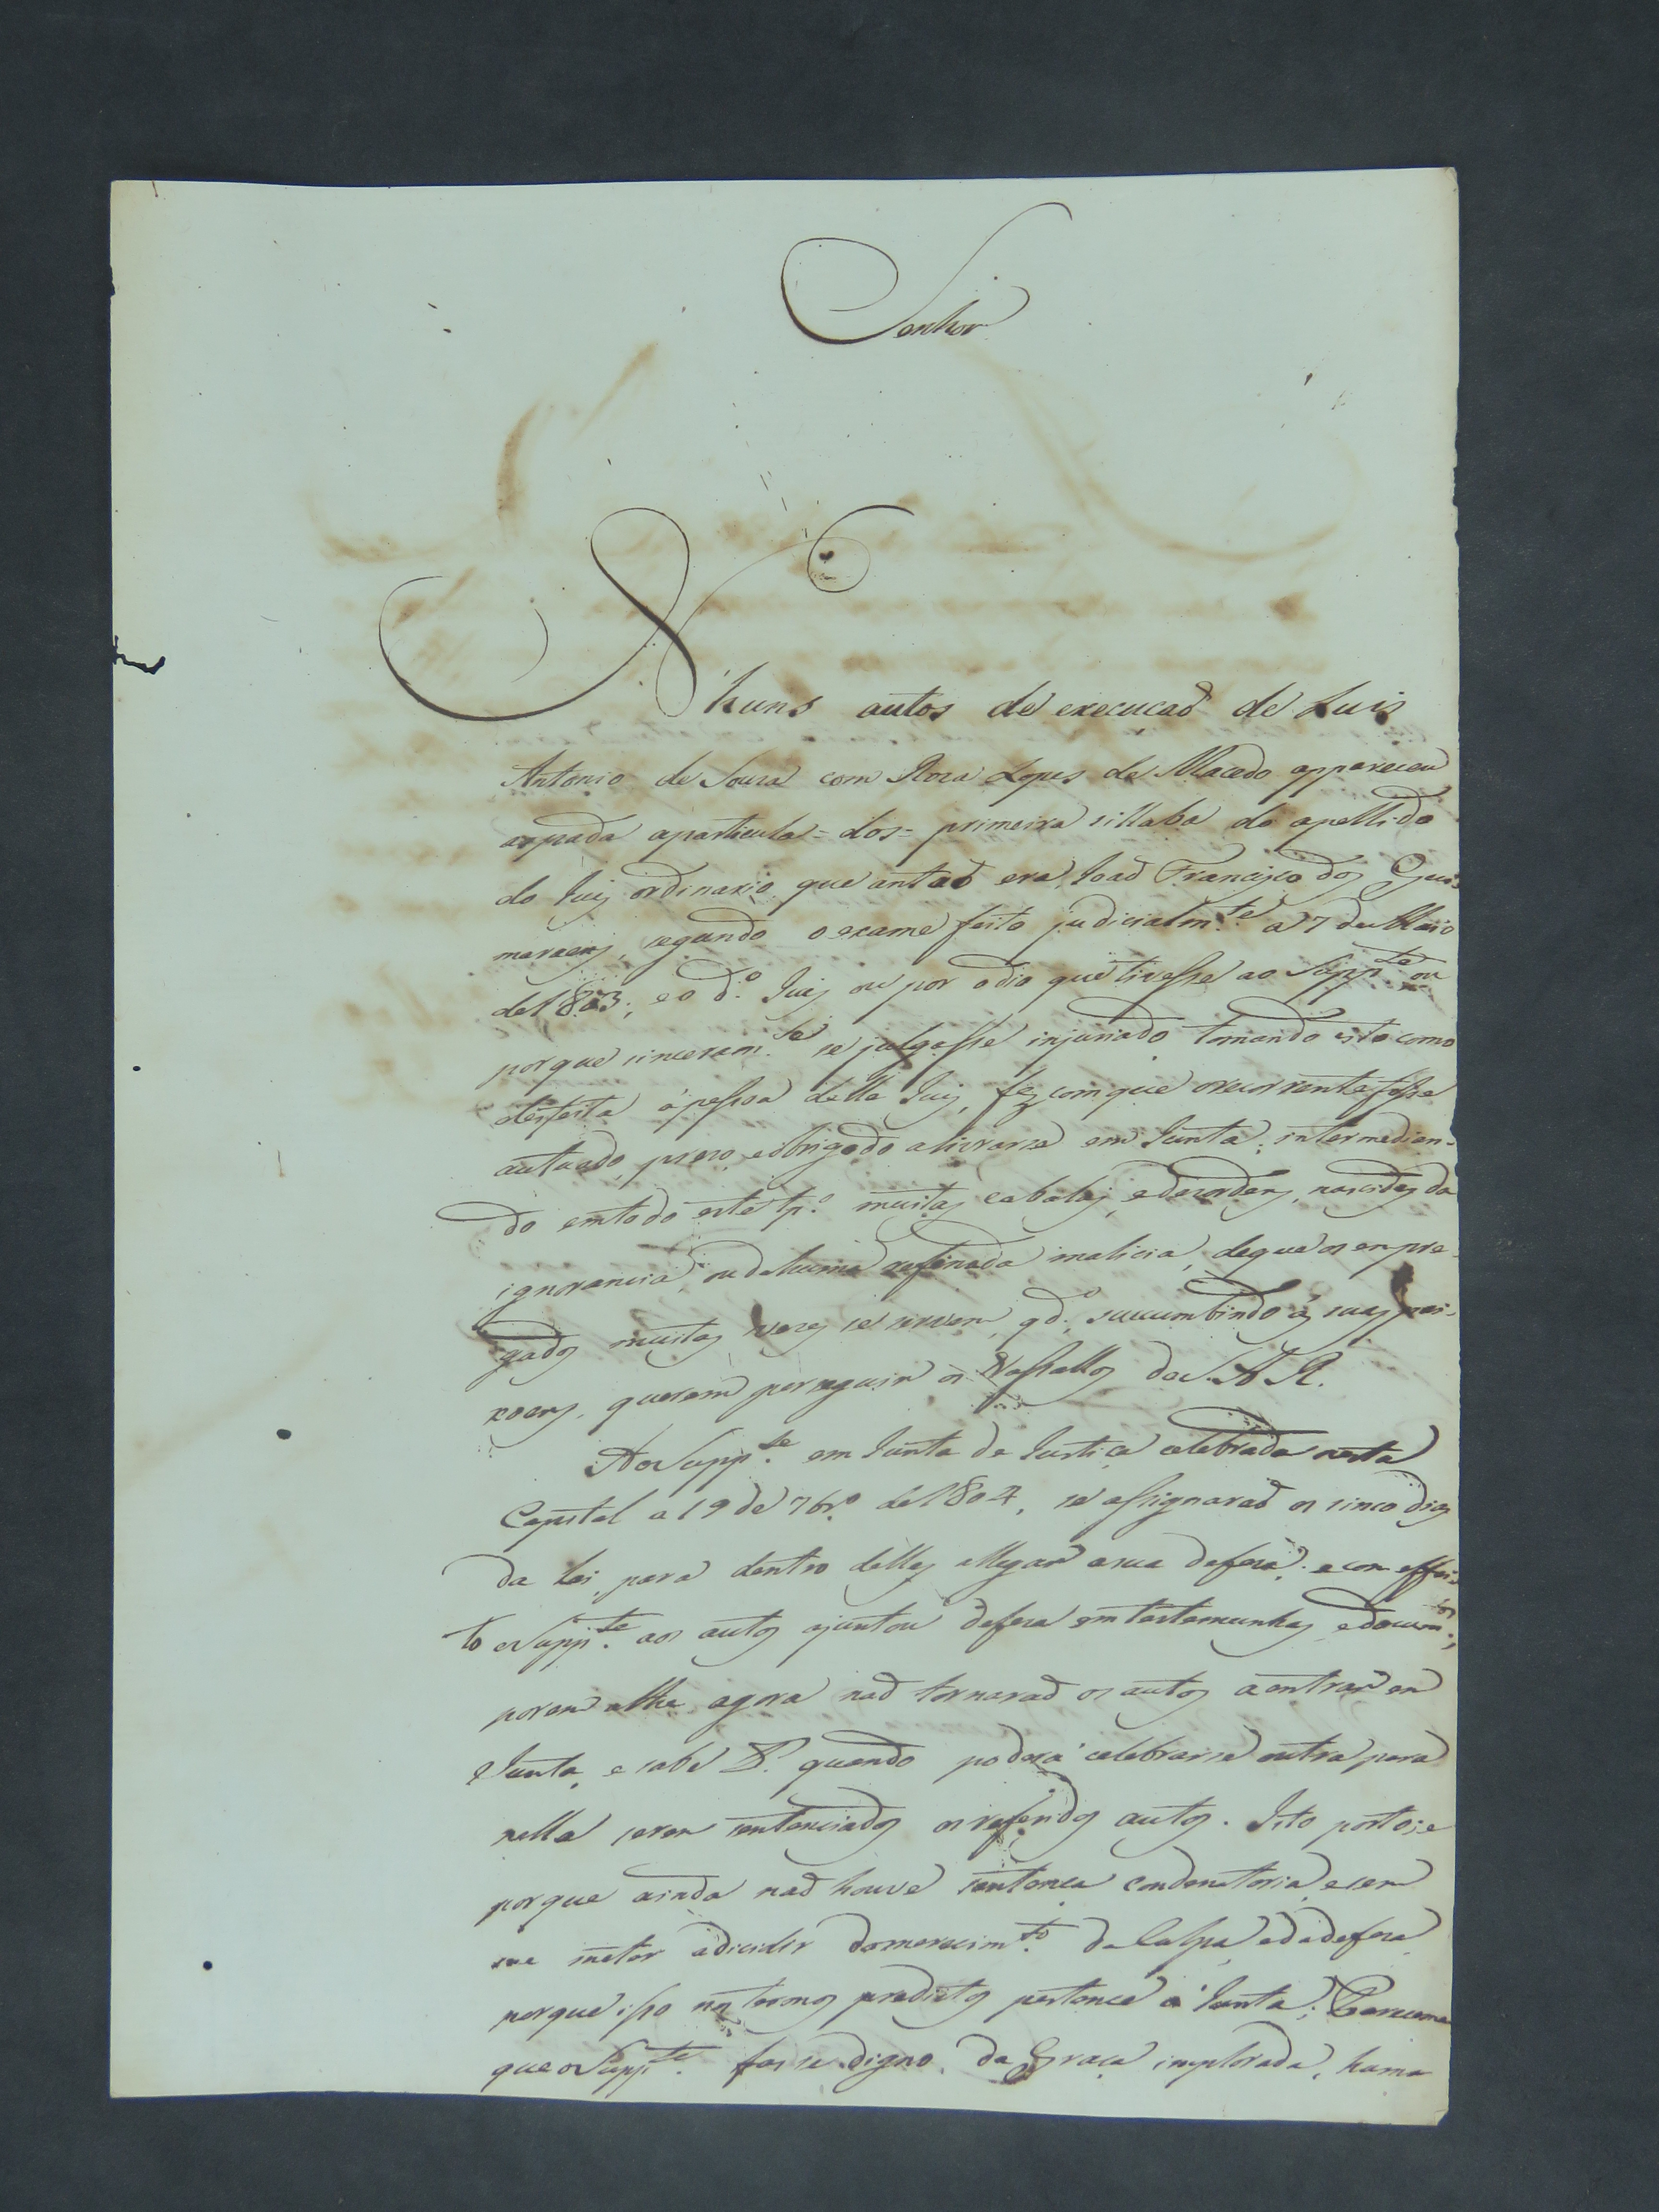 Senhor
N'huns autos de execucaõ de Luis
Antonio de Souza com Roza Lopes de Macedo appareceu
aspada aparticula = dos = primeira sillaba do apellido
do Juiz ordinario que antaõ era Joaõ Francisco dos Gui
maraens, segundo o exame feito judicialm.te a 7 de Maio
de 1803; e o d.o Juiz ou por odio que tivesse ao Supp.te ou
porque sinceram.te se julgasse injuriado tomando isto como
desfeita á pessoa delle Juiz, fez comque orecorrente fosse
autuado, prezo, eobrigado alivrarse em Junta; intermedian-
do emtodo este tp.o muitas cabalas, edezordens, nascidas da
ignorancia, ou dehuma refinada malicia, deque os empre-
gados muitas vezes se servem, qd.o, sucumbindo ás suas pai-
xoens, querem perseguir os Vassallos de V. A. R.
Ao Supp.te em Junta de Justiça celebrada nesta
Capital a 19 de 7br.o de 1804, se assignaraõ os sinco dias
da Lei, para dentro delles allegar asua defeza; e com effei
to o Supp.te aos autos ajuntou defeza em testemunhas, edocum.tos;
porem athe agora naõ tornaraõ os autos aentrar em
Junta, e sabe D.s quando poderá celebrarse outra para
nella serem sentenciados os referidos autos. Isto posto; e
porque ainda naõ houve sentença condenatoria, esem
me meter adicidir domerecim.to da Culpa, edadefeza
porque isso nos termos predictos pertence á Junta; Pareceme
que o Supp.te fas se digno da Graça implorada, huma